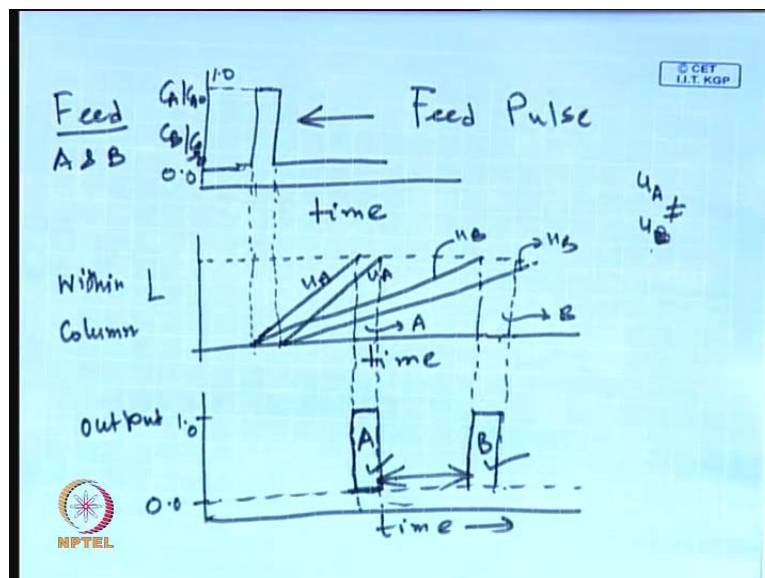 © CET
I.I.T. KGP
Feed
A & B
CA/CA0
CB/CB0
1.0
0.0
← Feed Pulse
time
uA ≠
uB
Within
Column
L
uA
uA
uB
uB
A
B
time
Output
1.0
0.0
A
B
time →
NPTEL